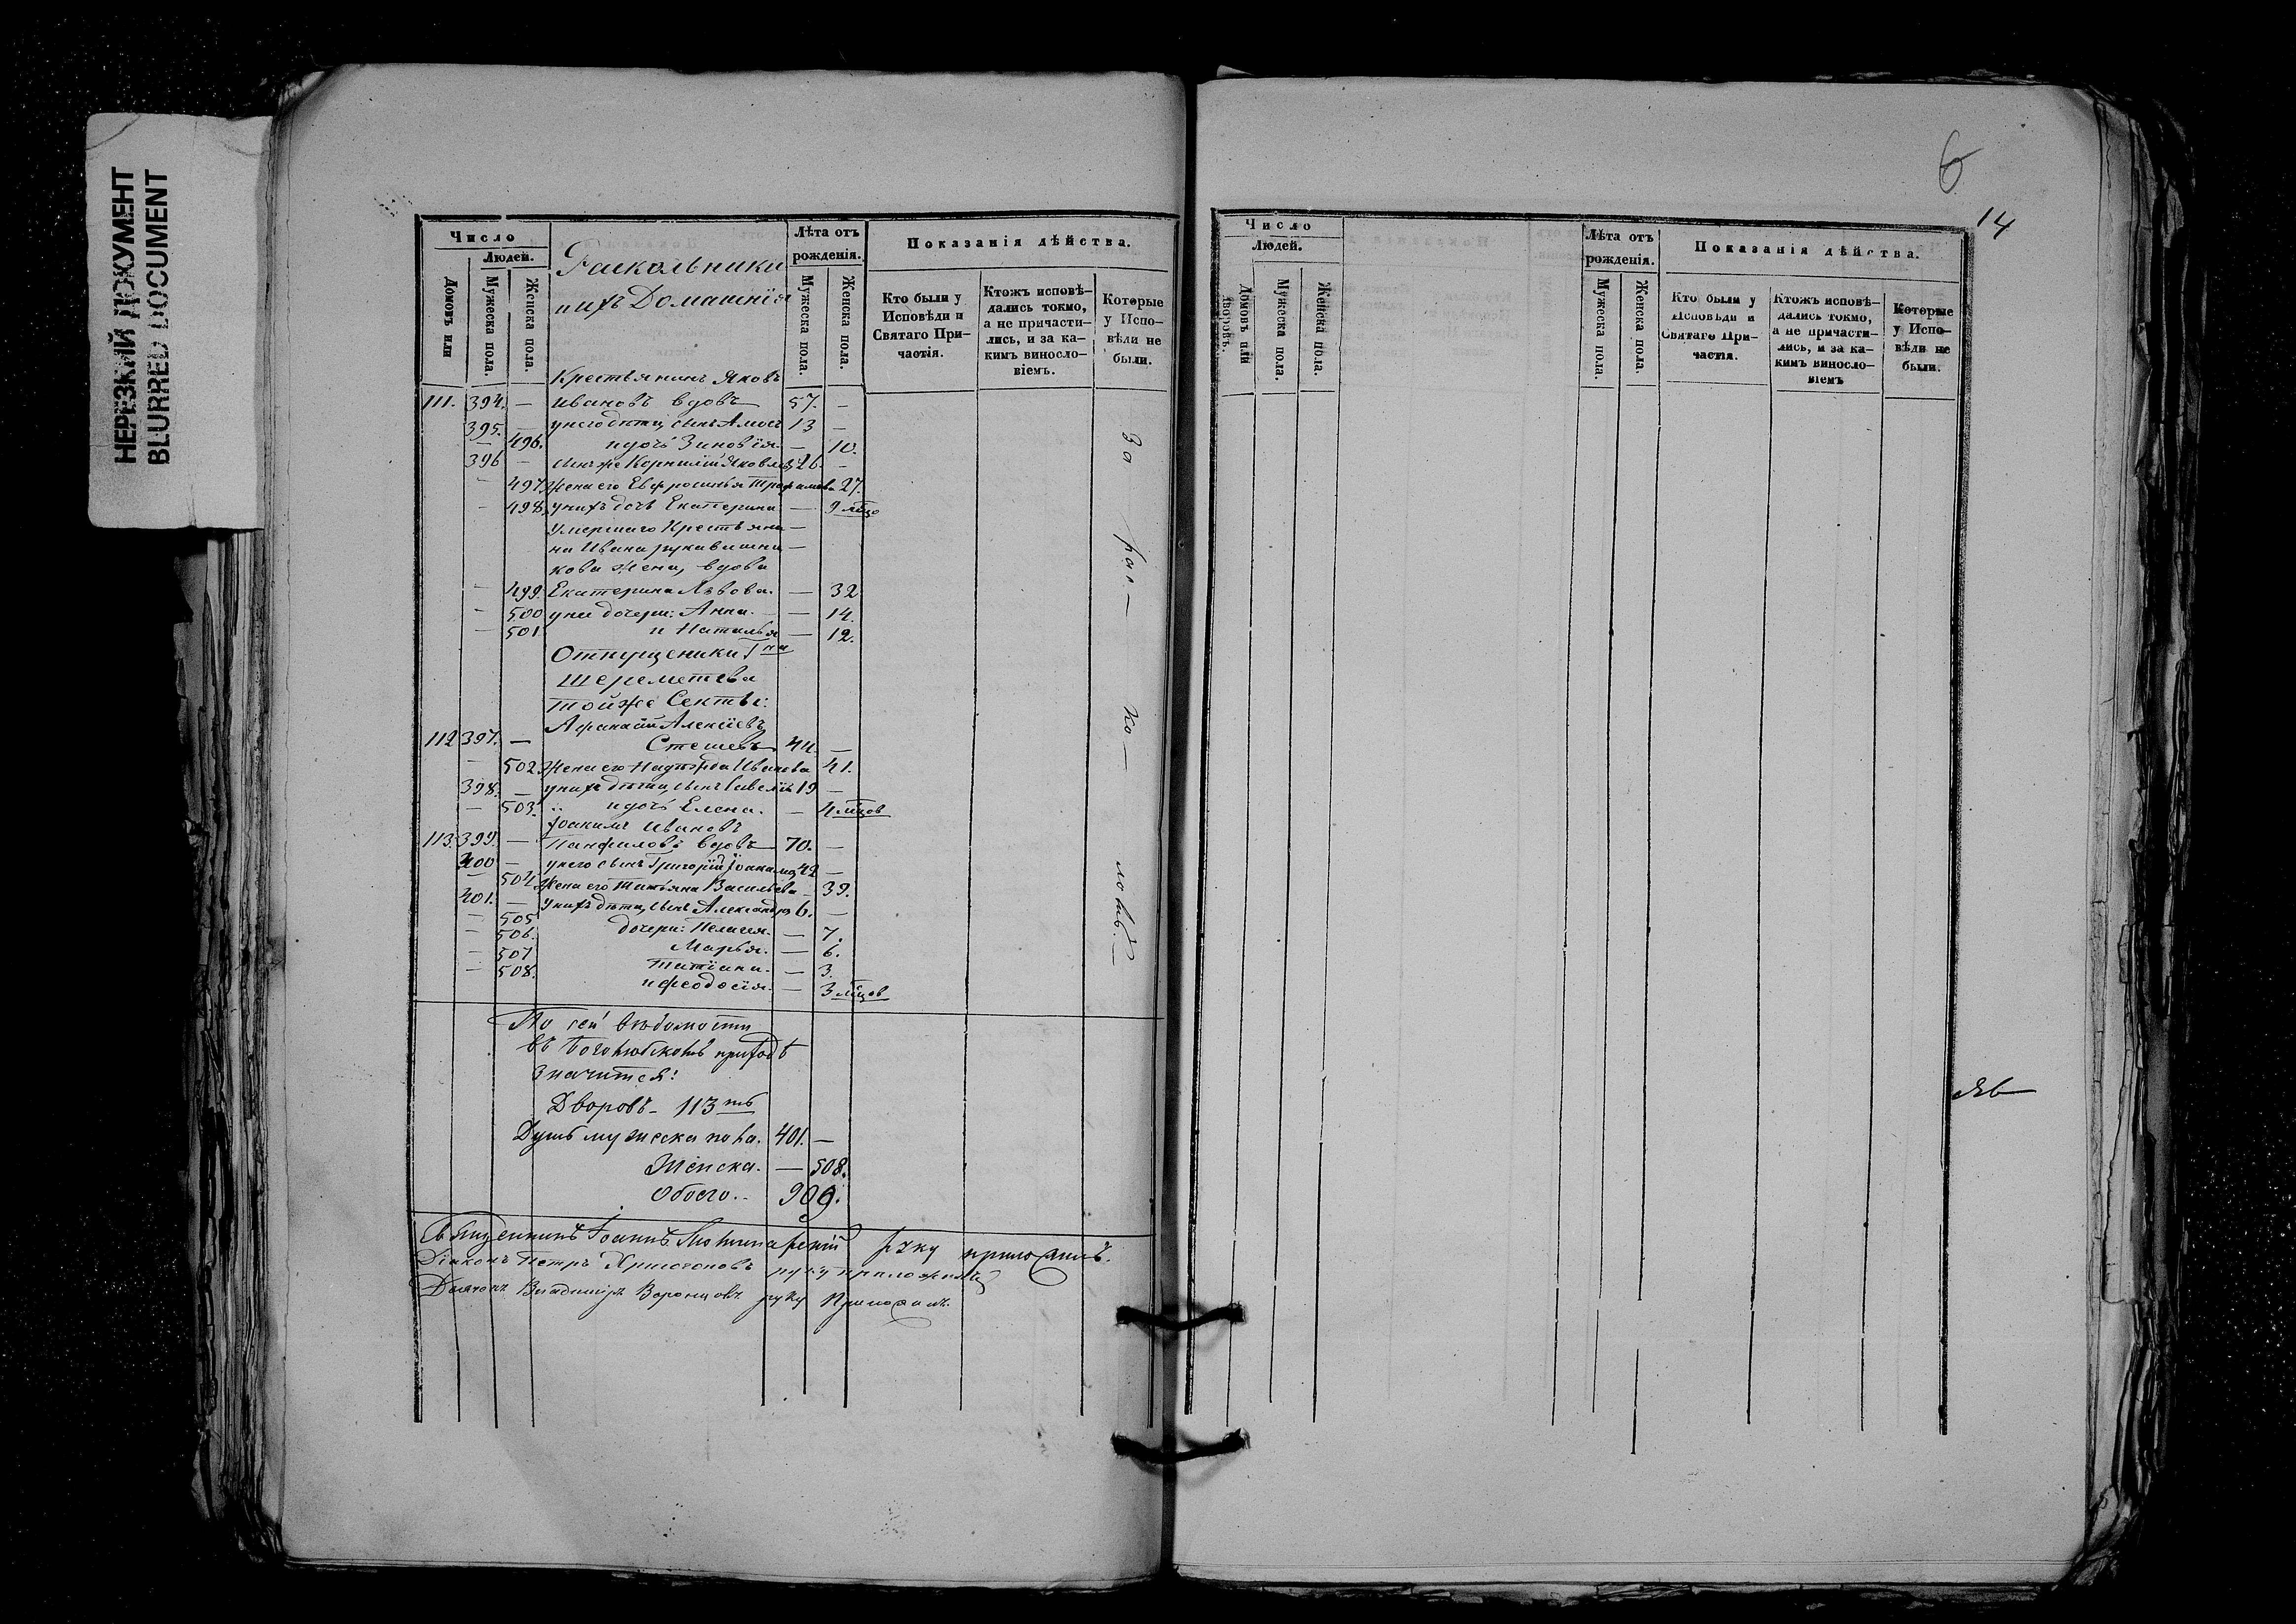 НЕРЕЗКИЙ ДОКУМЕНТ
BLURRED DOCUMENT
Число
Людей.
Домовъ или
Мужеска пола.
Женска пола.
Раскольники
ихъ Домашнія
Лѣта отъ рожденія.
Мужеска пола.
Женска пола.
Показанія дѣйства.
Кто были у Исповѣди и Святаго Причастія.
Ктожъ исповѣдались токмо, а не причастились, и за какимъ винословіемъ.
Которые у Исповѣди не были.
Крестьянинъ Яковъ
111. 394. — Ивановъ вдовъ 57. —
395. — у него дѣти, сынъ Амосъ 13 —
— 496. и дочь Зиновія. — 10.
396 — сынъ же Корнилій Яковлевъ 26. —
— 497. Жена его Евфросинья Трофимова 27.
— 498. у нихъ дочь Екатерина — 9 мѣцо
Умершаго Крестьяни—
на Ивана рукавишни—
кова жена, вдова
— 499. Екатерина Львова. — 32
— 500 у ней дочери: Анна. — 14.
— 501 и Наталья — 12.
Отпущеники Гна
Шереметева
тойже Секты:
Афанасій Алексіевъ
112 397. — Стешевъ 44. —
— 502. Жена его Надежда Иванова 41.
398. — у нихъ дѣти, сынъ Савелій 19 —
— 503. и дочь Елена. — 4 мѣцов
Іоакимъ Ивановъ
113. 399. — Панфиловъ вдовъ 70. —
400 — у него сынъ Григорій Іоакимовъ 42 —
— 504. Жена его Татьяна Васильева — 39.
401. — У нихъ дѣти, сынъ Александръ 6. —
— 505 дочери: Пелагея. — 7.
— 506. Марья. — 6.
— 507 Татіана. — 3.
— 508. и Феодосія. — 3 мѣцов
За рас— ко— ломъ. —
По сей вѣдомости
въ Боголюбскомъ приходѣ
значится:
Дворовъ — 113 ть
Душъ мужеска пола. 401. —
Женска. — 508.
Обоего.. 909.
Священникъ Іоаннъ руку приложилъ.
Діаконъ Петръ Хрисогоновъ руку приложилъ
Дьячокъ Владиміръ Воронцовъ руку Приложилъ.
6
14
Число
Людей.
Домовъ или дворовъ.
Мужеска пола.
Женска пола.
Лѣта отъ рожденія.
Мужеска пола.
Женска пола.
Показанія дѣйства.
Кто были у Исповѣди и Святаго Причастія.
Ктожъ исповѣдались токмо, а не причастились, и за какимъ винословіемъ
Которые у Исповѣди не были.